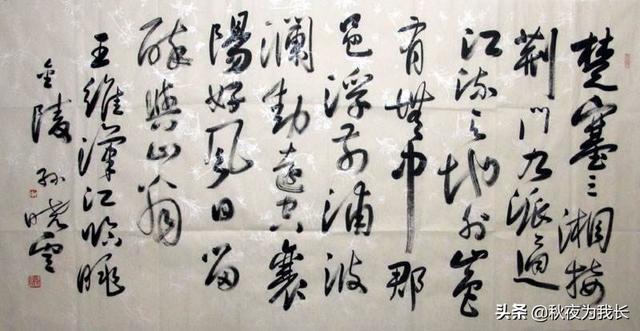 楚塞三湘接
荆门九派通
江流天地外山色
有無中郡
邑浮前浦波
瀾動遠空襄
陽好風日留
醉與山翁
王維漢江臨眺
金陵孙晓雲
头条 @秋夜为我长